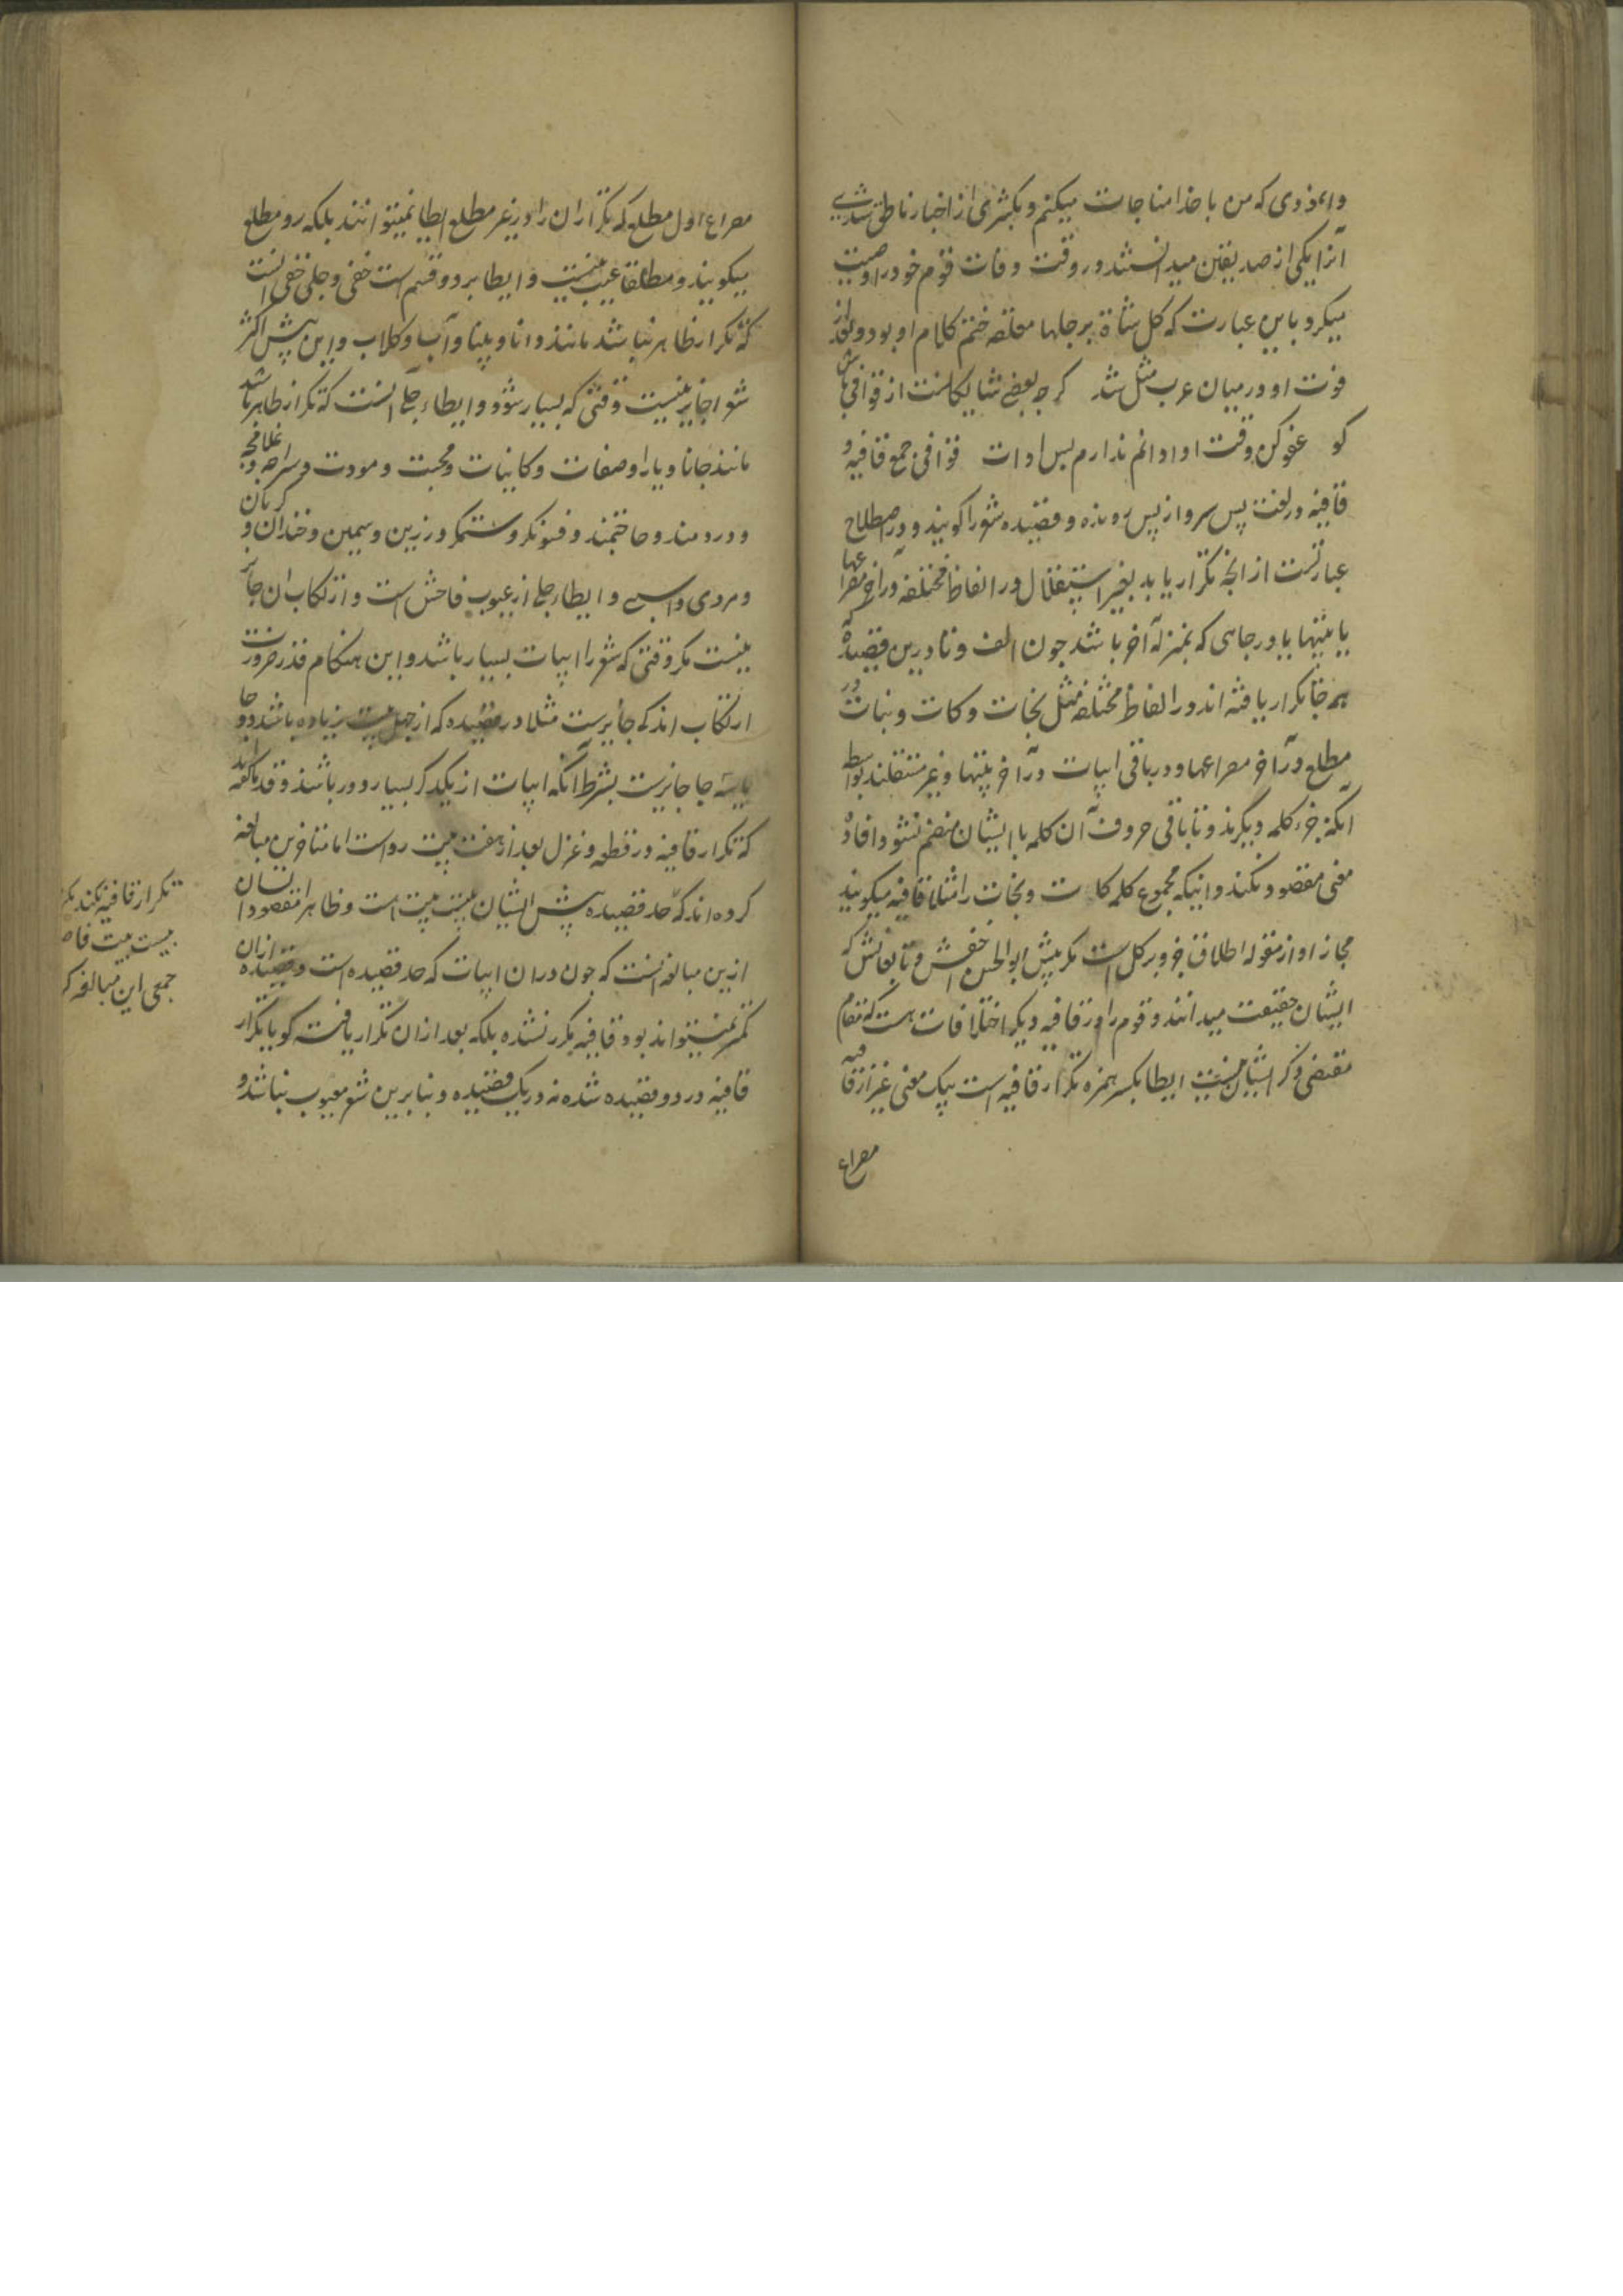 وانمودی که من با خدا مناجات میکنم و بکشری از اخبار ناطق شدی
آنرا یکی از صدیقین میدانستند و در وقت وفات قوم خود را وصیت
میکرد باین عبارت که کل شاة برجلها معلقه ختم کلام او بود و بعد از
فوت او در میان عرب مثل شد کرچه بعضی شایکانست از قوافی باش
کو عفو کن وقت ادا دانم ندارم بس ادات قوافی جمع قافیه و
قافیه در لغت پس سر و از پس رونده و قصیده شعر را کویند و در اصطلاح
عبارتست از انچه تکرار یابد بغیر استقلال در الفاظ مختلفه در آخر مصراعها
یا بیتها یا در جایی که بمنزله آخر باشد چون الف و تا درین قصیده که
همه جا تکرار یافته اند در الفاظ مختلفه مثل نجات و کات و نبات در
مطلع در آخر مصراعها و در باقی ابیات در آخر بیتها و غیر مستقلند بواسطه
آنکه جزء کلمه دیکرند و تا باقی حروف آن کلمه با ایشان منضم نشود افاده
معنی مقصود نکند و اینکه مجموع کلمه کات و نجات را مثلا قافیه میکویند
مجاز او از مقوله اطلاق جزو بر کل است مکر پیش ابو الحسن اخفش و تابعانش که
ایشان حقیقت میدانند و قوم را در قافیه دیکر اختلافات هست که مقام
مقتضی ذکر ایشان نیست ایطا بکسر همزه تکرار قافیه است بیک معنی غیر از قافیه
مصراع
مصراع اول مطلع که تکرار ان را در غیر مطلع ایطا نمیتوانند بلکه رد مطلع
میکویند و مطلقا عیب نیست و ایطا بر دو قسم است خفی و جلی خفی انست
که تکرار ظاهر نباشد مانند دانا و بینا و آب و کلاب و این پیش اکثر
شعرا جایز نیست وقتی که بسیار شود و ایطاء جلی انست که تکرار ظاهر باشد
مانند جانا و یارا و صفات و کاینات و محبت و مودت و سراچه و غلامچه
و دردمند و حاجتمند و فسونکر و ستمکر و زرین و سیمین و خندان و کریان
و مردی و اسبی و ایطاء جلی از عیوب فاحش است و ارتکاب ان جایز
نیست مکر وقتی که شعر را ابیات بسیار باشد و این هنکام قدر ضرورت
ارتکاب اندکی جایزست مثلا در قصیده که از چهل بیت زیاده باشد دو جا
یا سه جا جایزست بشرط آنکه ابیات از یکدیکر بسیار دور باشند و قدما کفته اند
که تکرار قافیه در قطعه و غزل بعد از هفت بیت رواست اما متاخرین مبالغه
کرده اند که حد قصیده پیش ایشان بیست بیت است و ظاهرا مقصود ایشان
ازین مبالغه انست که چون دران ابیات که حد قصیده است و قصیده ازان
کمتر نمیتواند بود قافیه مکرر نشده بلکه بعد ازان تکرار یافته کویا تکرار
قافیه در دو قصیده شده نه در یک قصیده و بنابرین شعر معیوب نباشد و
تکرار قافیه نکند
بیست بیت
جمعی این مبالغه